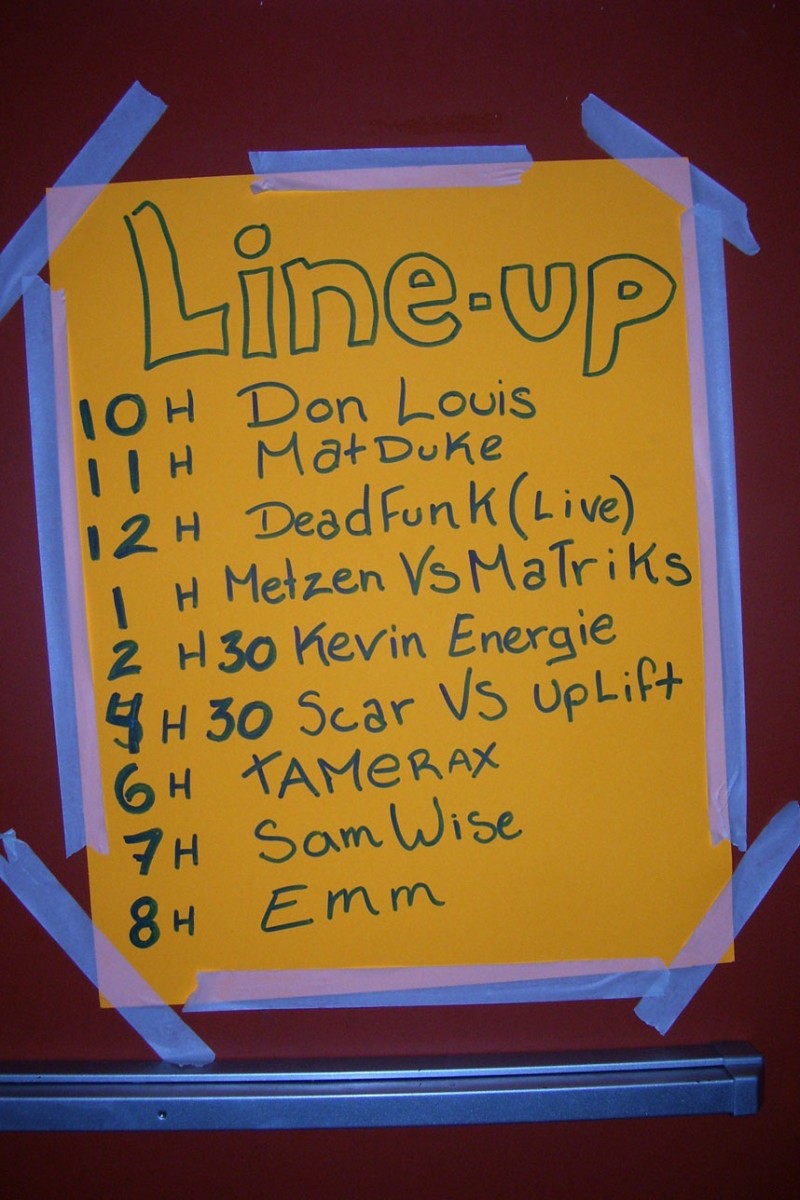 Line-up
10 H Don Louis
11 H MatDuke
12 H DeadFunk (Live)
1 H Metzen Vs MaTriks
2 H 30 Kevin Energie
4 H 30 Scar VS UpLift
6 H TAMeRAX
7 H Sam Wise
8 H Emm